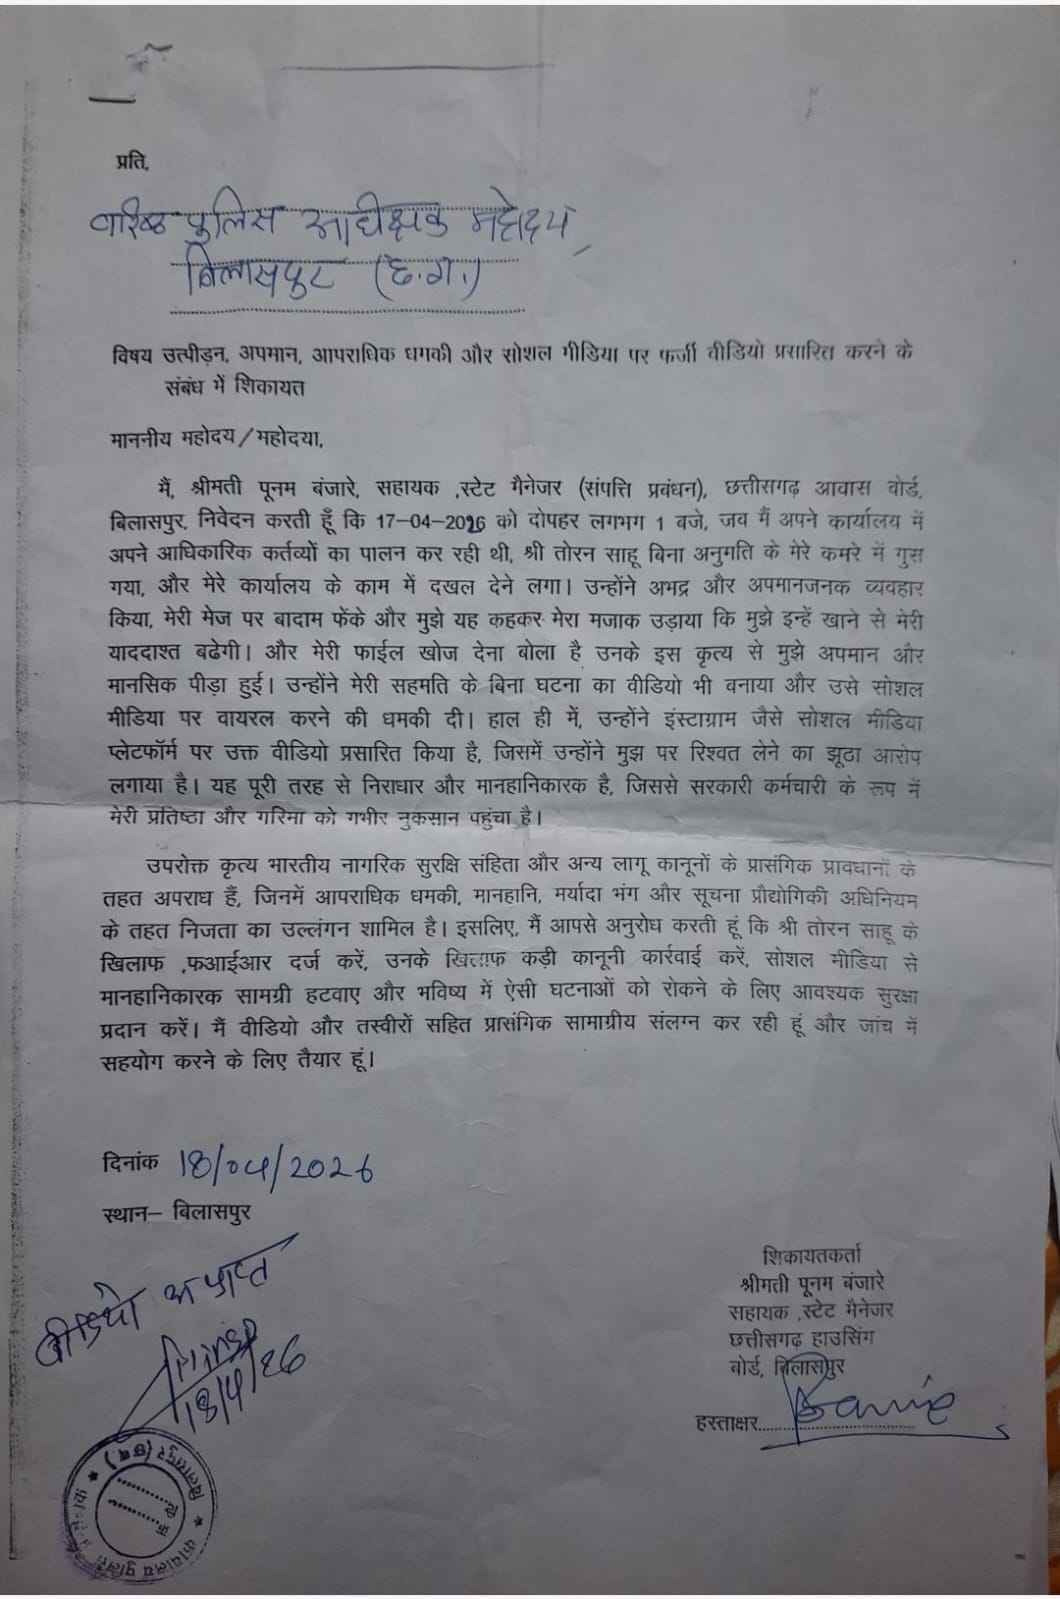 प्रति,
वरिष्ठ पुलिस अधीक्षक महोदय,
बिलासपुर (छ.ग.)
विषय उत्पीड़न, अपमान, आपराधिक धमकी और सोशल मीडिया पर फर्जी वीडियो प्रसारित करने के
संबंध में शिकायत
माननीय महोदय/महोदया,
मैं, श्रीमती पूनम बंजारे, सहायक ,स्टेट मैनेजर (संपत्ति प्रबंधन), छत्तीसगढ़ आवास बोर्ड,
बिलासपुर, निवेदन करती हूँ कि 17-04-2026 को दोपहर लगभग 1 बजे, जब मैं अपने कार्यालय में
अपने आधिकारिक कर्तव्यों का पालन कर रही थी, श्री तोरन साहू बिना अनुमति के मेरे कमरे में गुस
गया, और मेरे कार्यालय के काम में दखल देने लगा। उन्होंने अभद्र और अपमानजनक व्यवहार
किया, मेरी मेज पर बादाम फेंके और मुझे यह कहकर मेरा मजाक उड़ाया कि मुझे इन्हें खाने से मेरी
याददाश्त बढेगी। और मेरी फाईल खोज देना बोला है उनके इस कृत्य से मुझे अपमान और
मानसिक पीड़ा हुई। उन्होंने मेरी सहमति के बिना घटना का वीडियो भी बनाया और उसे सोशल
मीडिया पर वायरल करने की धमकी दी। हाल ही में, उन्होंने इंस्टाग्राम जैसे सोशल मीडिया
प्लेटफॉर्म पर उक्त वीडियो प्रसारित किया है, जिसमें उन्होंने मुझ पर रिश्वत लेने का झूठा आरोप
लगाया है। यह पूरी तरह से निराधार और मानहानिकारक है, जिससे सरकारी कर्मचारी के रूप में
मेरी प्रतिष्ठा और गरिमा को गंभीर नुकसान पहुंचा है।
उपरोक्त कृत्य भारतीय नागरिक सुरक्षि संहिता और अन्य लागू कानूनों के प्रासंगिक प्रावधानों के
तहत अपराध हैं, जिनमें आपराधिक धमकी, मानहानि, मर्यादा भंग और सूचना प्रौद्योगिकी अधिनियम
के तहत निजता का उल्लंगन शामिल है। इसलिए, मैं आपसे अनुरोध करती हूं कि श्री तोरन साहू के
खिलाफ ,फआईआर दर्ज करें, उनके खिलाफ कड़ी कानूनी कार्रवाई करें, सोशल मीडिया से
मानहानिकारक सामग्री हटवाए और भविष्य में ऐसी घटनाओं को रोकने के लिए आवश्यक सुरक्षा
प्रदान करें। मैं वीडियो और तस्वीरों सहित प्रासंगिक सामाग्रीय संलग्न कर रही हूं और जांच में
सहयोग करने के लिए तैयार हूं।
दिनांक 18/04/2026
स्थान– बिलासपुर
वीडियो अप्राप्त
18/4/26
शिकायतकर्ता
श्रीमती पूनम बंजारे
सहायक ,स्टेट मैनेजर
छत्तीसगढ हाउसिंग
बोर्ड, बिलासपुर
हस्ताक्षर
कार्यालय पुलिस
बिलासपुर (छ.ग.)